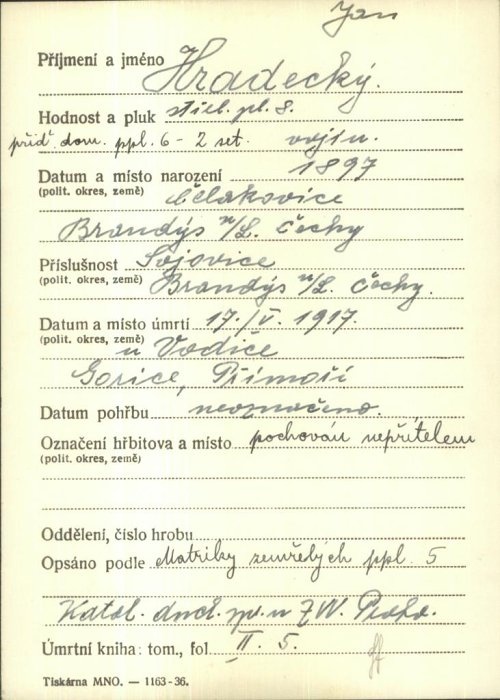 Jan
Příjmení a jméno Hradecký.
Hodnost a pluk střel. pl. 8.
příd. dom. ppl. 6 - 2 set. vojín.
Datum a místo narození 1897
(polit. okres, země) Čelakovice
Brandýs n/L. Čechy
Příslušnost Sojovice
(polit. okres, země) Brandýs n/L. Čechy.
Datum a místo úmrtí 17./V. 1917.
(polit. okres, země) u Vodice
Gorice, Přímoří
Datum pohřbu neoznačeno.
Označení hřbitova a místo pochován nepřítelem
(polit. okres, země)
Oddělení, číslo hrobu
Opsáno podle Matriky zemřelých ppl. 5
Katol. duch. spr. u Praha.
Úmrtní kniha: tom., fol. II. 5.
Tiskárna MNO. — 1163-36.